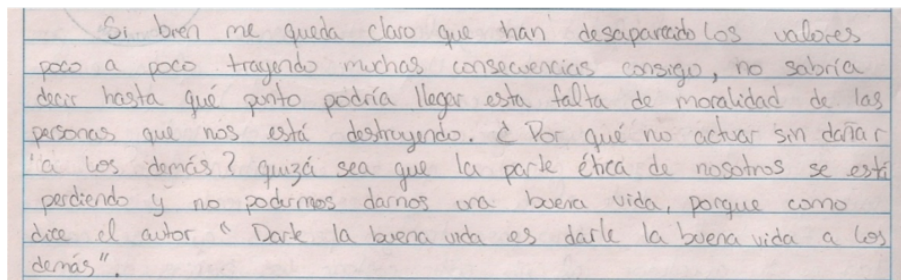 Si bien me queda claro que han desaparecido los valores
poco a poco trayendo muchas consecuencias consigo, no sabría
decir hasta qué punto podría llegar esta falta de moralidad de las
personas que nos está destruyendo. ¿Por qué no actuar sin dañar
a los demás? quizá sea que la parte ética de nosotros se está
perdiendo y no podurmos darnos una buena vida, porque como
dice el autor "Darle la buena vida es darle la buena vida a los
demás".